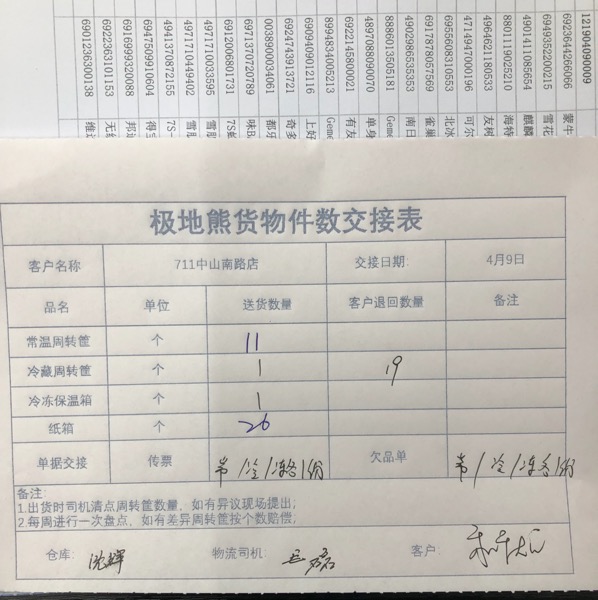 121904090009
6923644266066 蒙牛
6949352200215 雪花
4901411085654 麒麟
8801119025210 海特
4964621180533 友树
4714947000196 可尔
6955608310553 北冰
6917878057569 雀巢
4902986535353 南日
8886013505181 Geme
4897088090070 单身
6922145800021 有友
8994834005213 Geme
6909409012116 上好
6924743913721 奇多
0038900034061 都乐
6971370720789 味B
6912006801731 7S
4971710033595 雪肌
4971710449402 雪肌
4941370872155 7S-
6947509910604 得
6916999320088 邦
6922363101153 无
6901236300138 维
极地熊货物件数交接表
客户名称 711中山南路店 交接日期: 4月9日
品名 单位 送货数量 客户退回数量 备注
常温周转筐 个 11
冷藏周转筐 个 1 19
冷冻保温箱 个 1
纸箱 个 26
单据交接 传票 常/冷/冻各1份 欠品单 常/冷/冻各1份
备注:
1.出货时司机清点周转筐数量,如有异议现场提出;
2.每周进行一次盘点,如有差异周转筐按个数赔偿;
仓库: 沈辉 物流司机: 磊 客户: